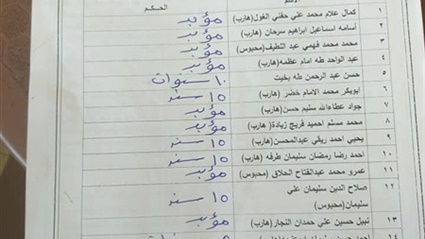 الحكم
١ كمال علام محمد علي حفني الغول(هارب) مؤبد
٢ أسامه اسماعيل ابراهيم سرحان (هارب) مؤبد
٣ محمد محمد فهمي عبد اللطيف(محبوس) مؤبد
٤ عبد الواحد طه امام عظمه(هارب) مؤبد
٥ حسن عبد الرحمن طه بخيت ١٠ سنوات
٦ ابوبكر محمد الامام خضر (هارب) ١٥ سنه
٧ جواد عطاءالله سليم حسن(هارب) مؤبد
٨ محمد مسلم احميد فريج زيادة(هارب) مؤبد
٩ يحيي احمد ريفي عبدالمحسن(هارب) ١٥ سنه
١٠ احمد رضا رمضان سليمان طرفه (هارب) ١٥ سنه
١١ عمرو محمد عبدالفتاح الحلاق (محبوس) مؤبد
١٢ صلاح الدين سليمان علي
سليمان(محبوس) ١٥ سنه
١٣ نبيل حسين علي حمدان النجار(هارب) مؤبد
١٤